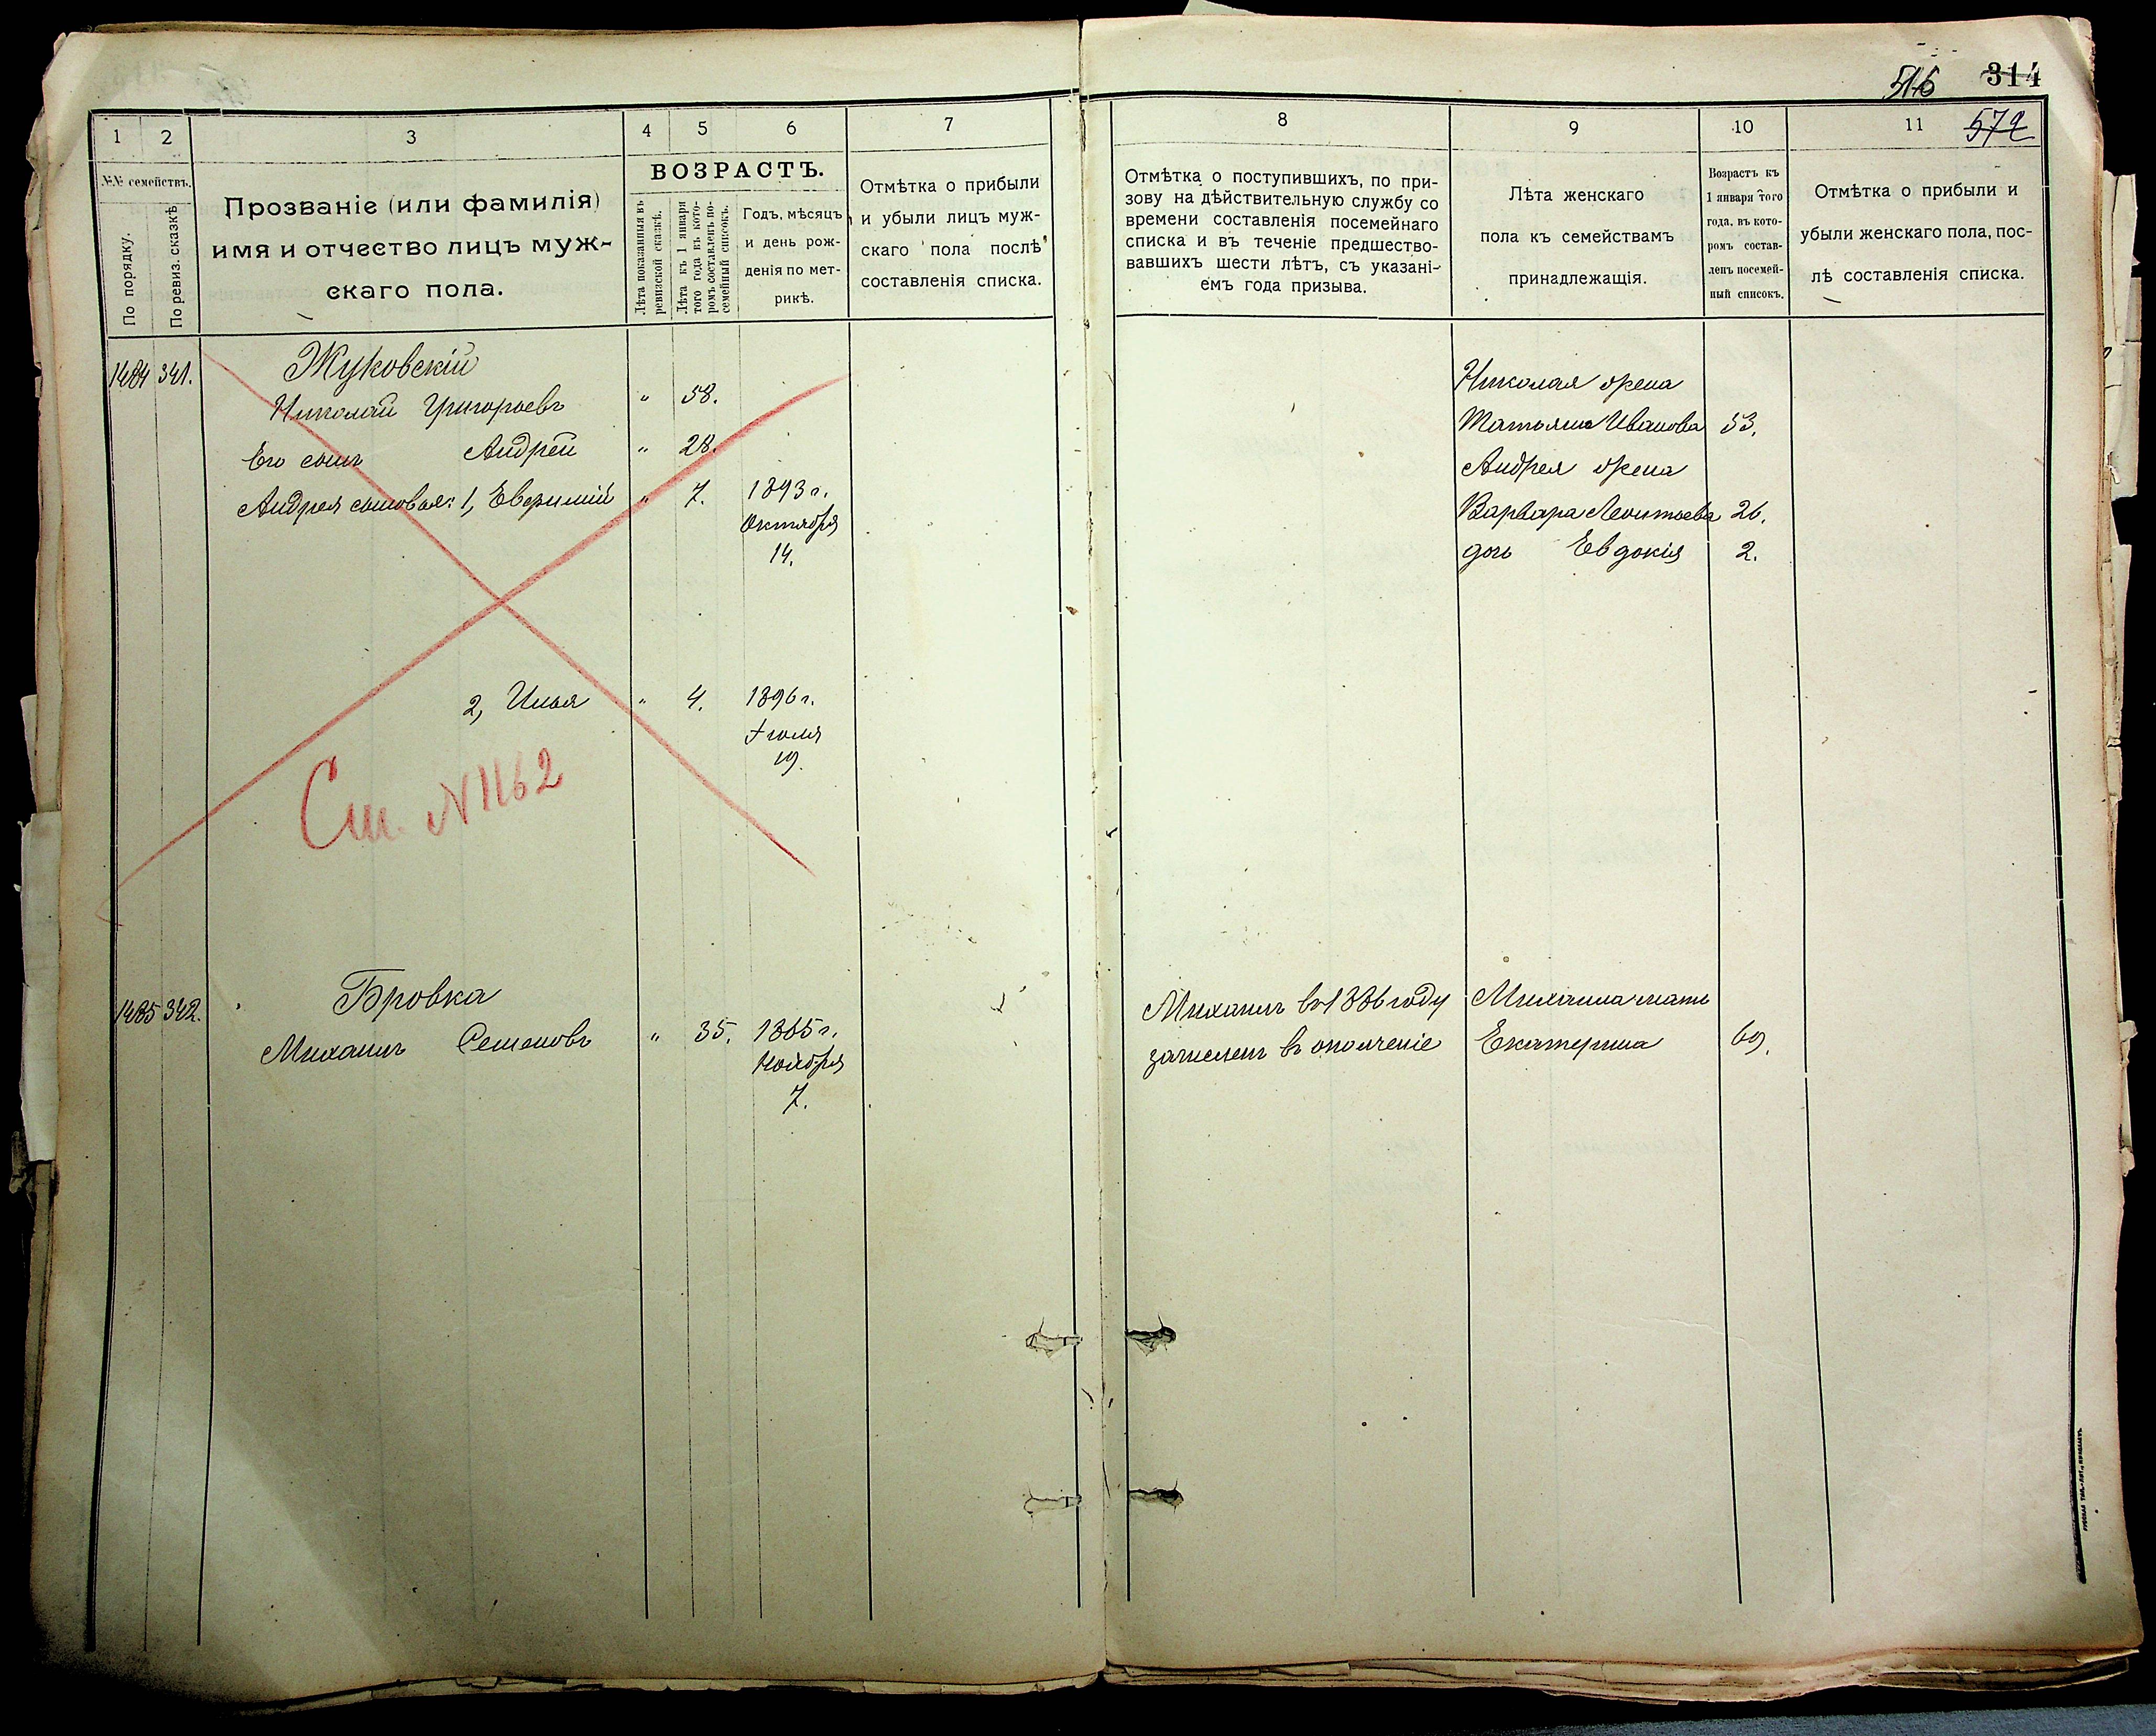 516 314
1 2 3 4 5 6 7
№№ семействъ.
По порядку.
По ревиз. сказкѣ.
Прозваніе (или фамилія)
имя и отчество лицъ муж-
скаго пола.
ВОЗРАСТЪ.
Лѣта показанныя въ
ревизской сказкѣ.
Лѣта къ 1 января
того года въ кото-
ромъ составленъ по-
семейный списокъ.
Годъ, мѣсяцъ
и день рож-
денія по мет-
рикѣ.
Отмѣтка о прибыли
и убыли лицъ муж-
скаго пола послѣ
составленія списка.
1484 341. Жуковскій
Николай Григорьевъ " 58.
Его сынъ Андрей " 28.
Андрея сыновья: 1, Евфимій " 7. 1893 г.
Октября
14.
2, Илья " 4. 1896 г.
Іюля
19.
См. N 1162
1485 342. Бровка
Михаилъ Семеновъ " 35. 1865 г.
Ноября
7.
8 9 10 11 572
Отмѣтка о поступившихъ, по при-
зову на дѣйствительную службу со
времени составленія посемейнаго
списка и въ теченіе предшество-
вавшихъ шести лѣтъ, съ указані-
емъ года призыва.
Лѣта женскаго
пола къ семействамъ
принадлежащія.
Возрастъ къ
1 января того
года, въ кото-
ромъ состав-
ленъ посемей-
ный списокъ.
Отмѣтка о прибыли и
убыли женскаго пола, пос-
лѣ составленія списка.
Николая жена
Татьяна Иванова 53.
Андрея жена
Варвара Леонтьева 26.
дочь Евдокія 2.
Михаилъ въ 1886 году Михаила мать
зачисленъ въ ополченіе Екатерина 69.